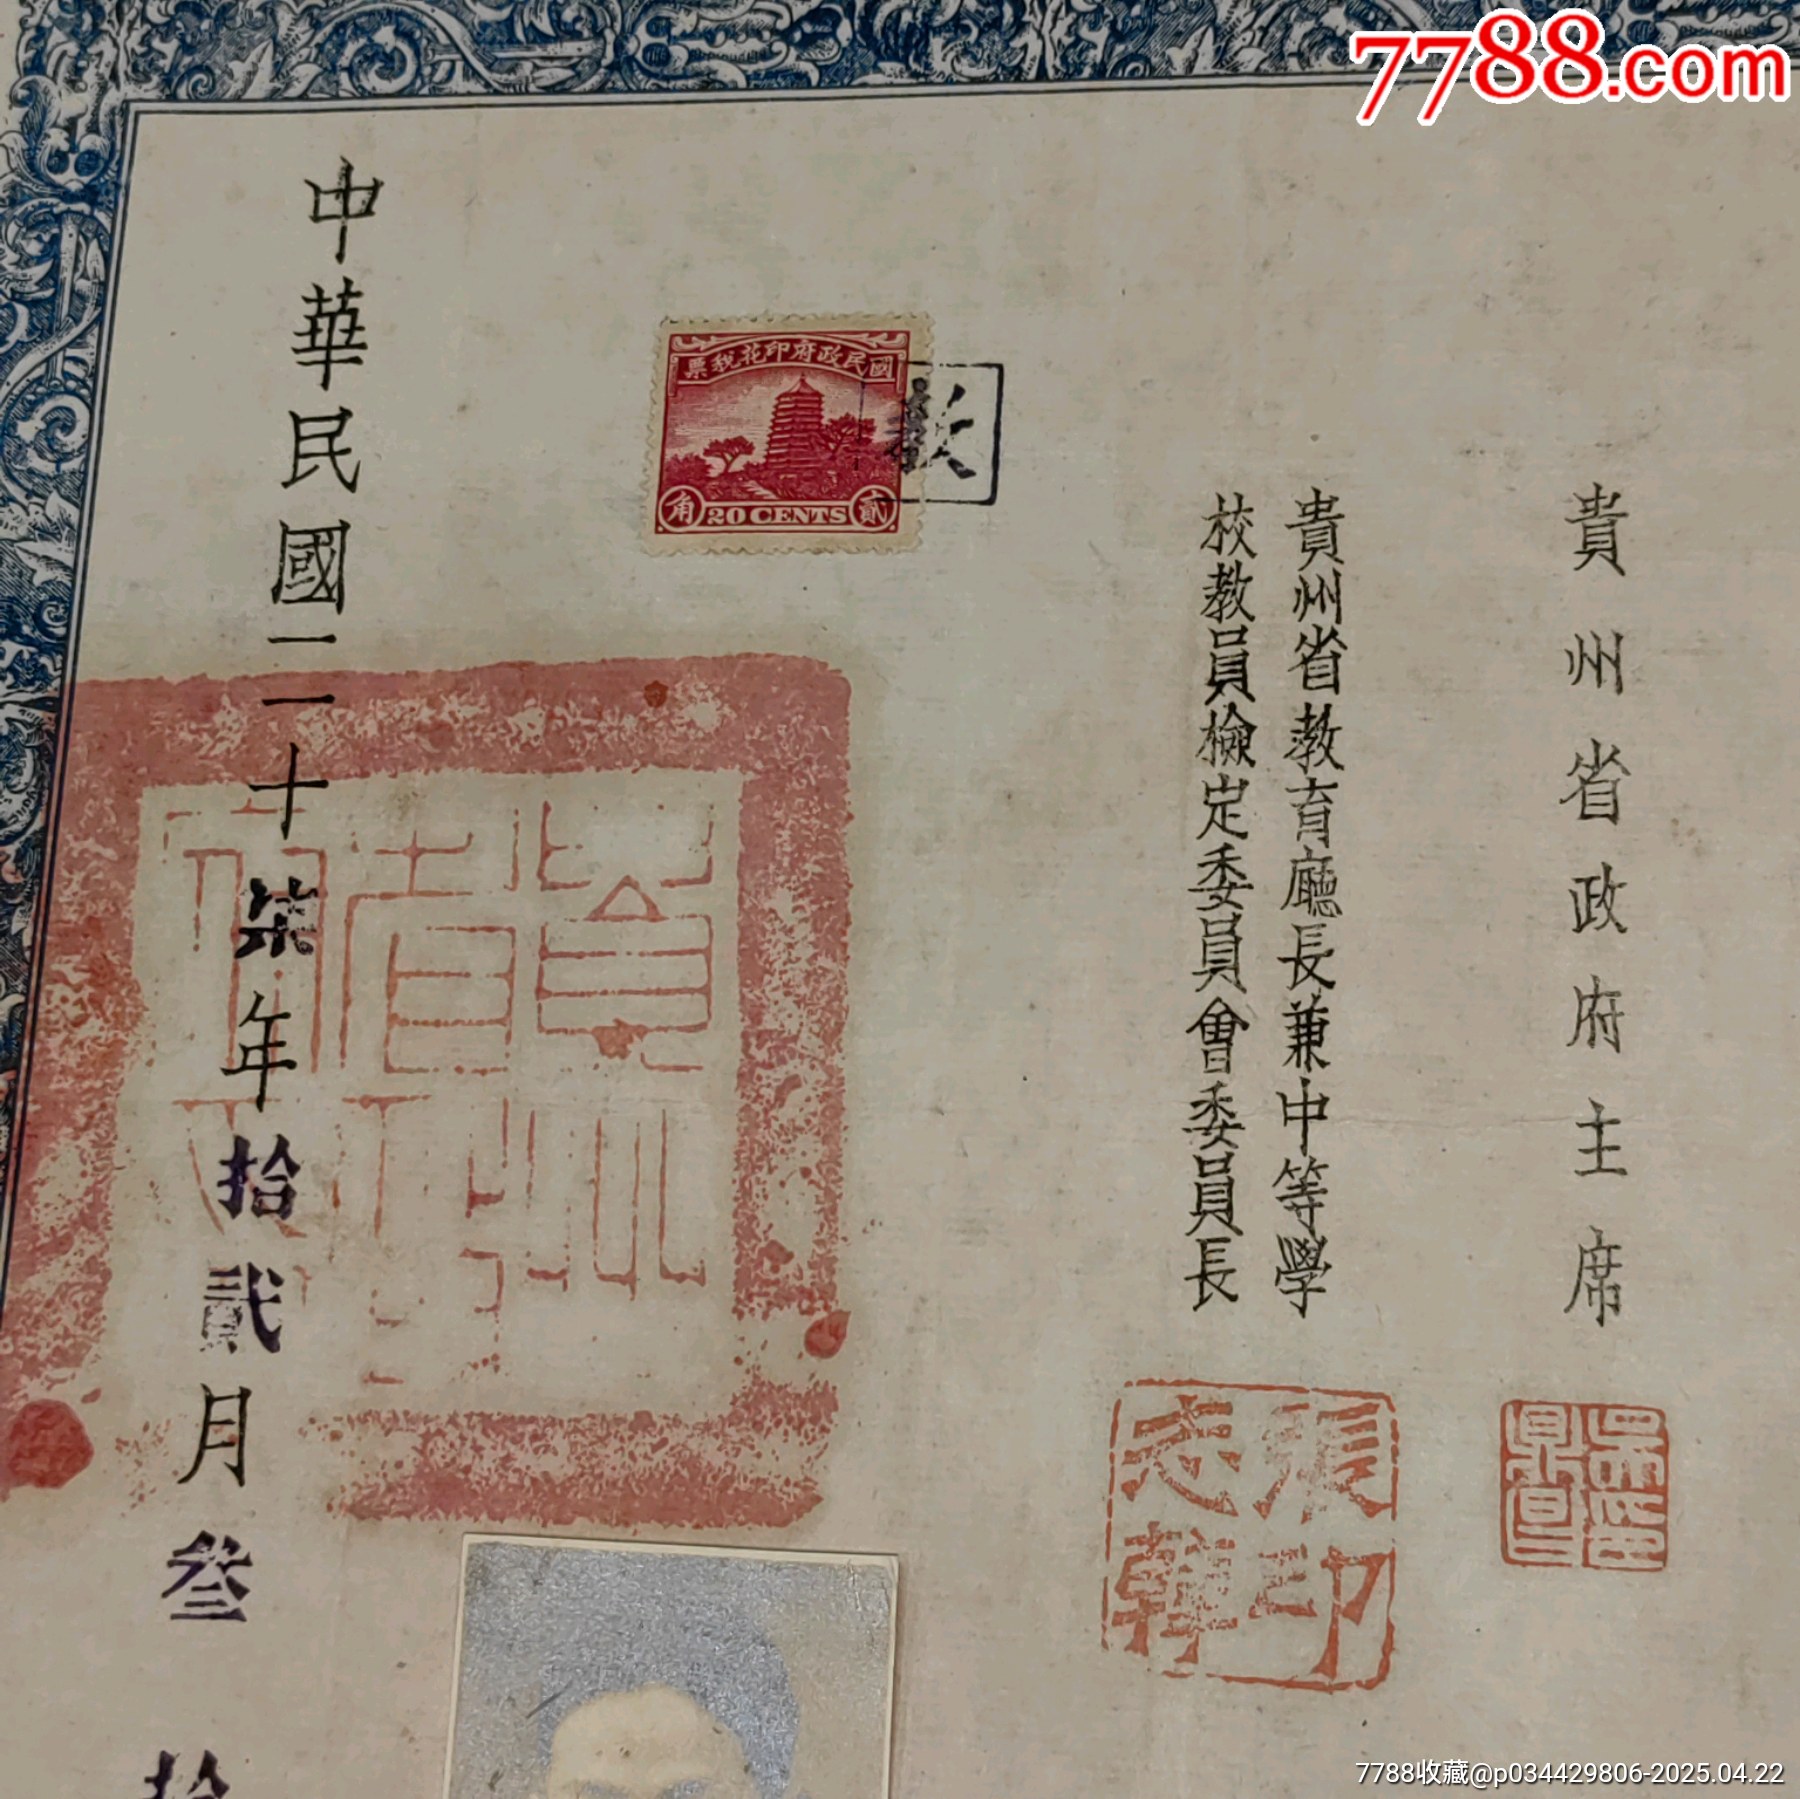 7788.com
貴州省政府主席
吳印鼎昌
貴州省教育廳長兼中等學
校教員檢定委員會委員長
張印志韓
國民政府印花稅票
貳角
20 CENTS
教
中華民國二十柒年拾貳月叁拾
7788收藏@p034429806-2025.04.22